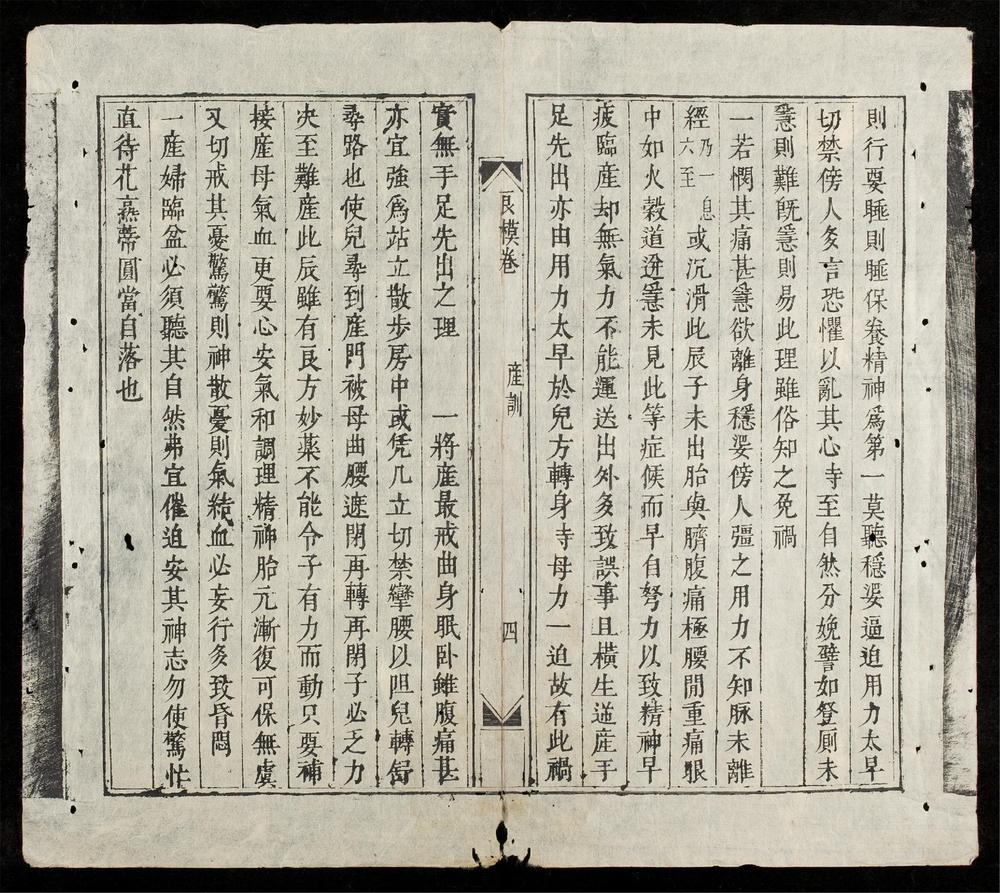 則行要睡則睡保養精神爲第一莫聽穩婆逼迫用力太早
切禁傍人多言恐懼以亂其心寺至自然分娩譬如登厠未
急則難旣急則易此理雖俗知之免禍
一若憫其痛甚急欲離身穩婆傍人彊之用力不知脉未離
經乃一息六至或沉滑此辰子未出胎與臍腹痛極腰間重痛眼
中如火穀道迸急未見此等症候而早自努力以致精神早
疲臨産却無氣力不能運送出外多致誤事且橫生逆産手
足先出亦由用力太早於兒方轉身寺母力一迫故有此禍
良模卷 産訓 四
實無手足先出之理 一將産最戒曲身眠卧雖腹痛甚
亦宜強爲站立散步房中或凭几立切禁攣腰以阻兒轉身
尋路也使兒尋到産門被母曲腰遮閉再轉再閉子必乏力
决至難産此辰雖有良方妙藥不能令子有力而動只要補
接産母氣血更要心安氣和調理精神胎元漸復可保無虞
又切戒其憂驚驚則神散憂則氣結血必妄行多致昏悶
一産婦臨盆必須聽其自然弗宜催迫安其神志勿使驚怯
直待花熟蒂圓當自落也